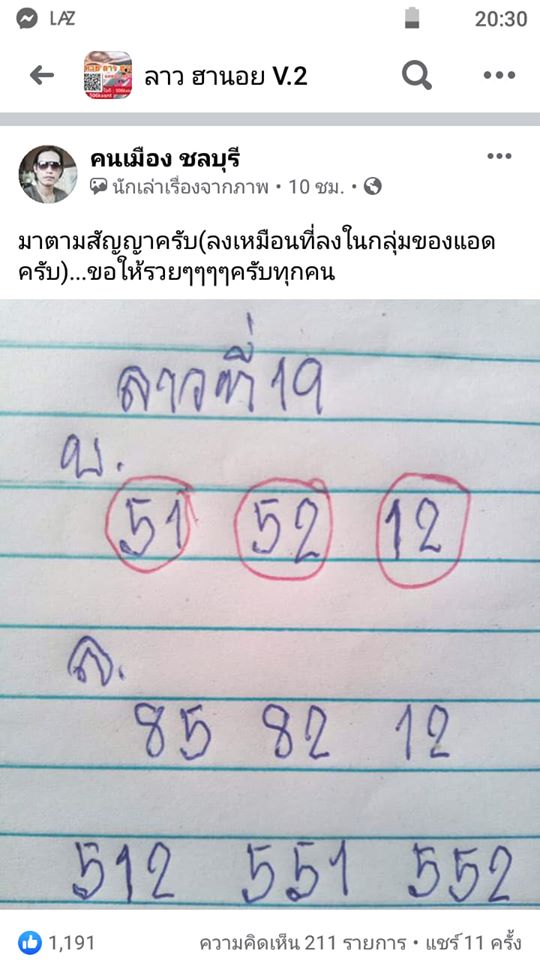 LAZ 20:30
ลาว ฮานอย V.2
คนเมือง ชลบุรี
นักเล่าเรื่องจากภาพ • 10 ชม. •
มาตามสัญญาครับ(ลงเหมือนที่ลงในกลุ่มของแอด
ครับ)...ขอให้รวยๆๆๆๆครับทุกคน
ลาวที่ 19
บ.
51 52 12
ล.
85 82 12
512 551 552
1,191 ความคิดเห็น 211 รายการ • แชร์ 11 ครั้ง